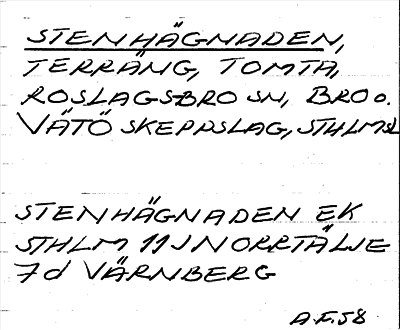 STENHÄGNADEN,
TERRÄNG, TOMTA,
ROSLAGSBRO SN, BRO O.
VÄTÖ SKEPPSLAG, STHLMSL
STENHÄGNADEN EK
STHLM 11 J NORRTÄLJE
7d VÄRNBERG
A.F. 58